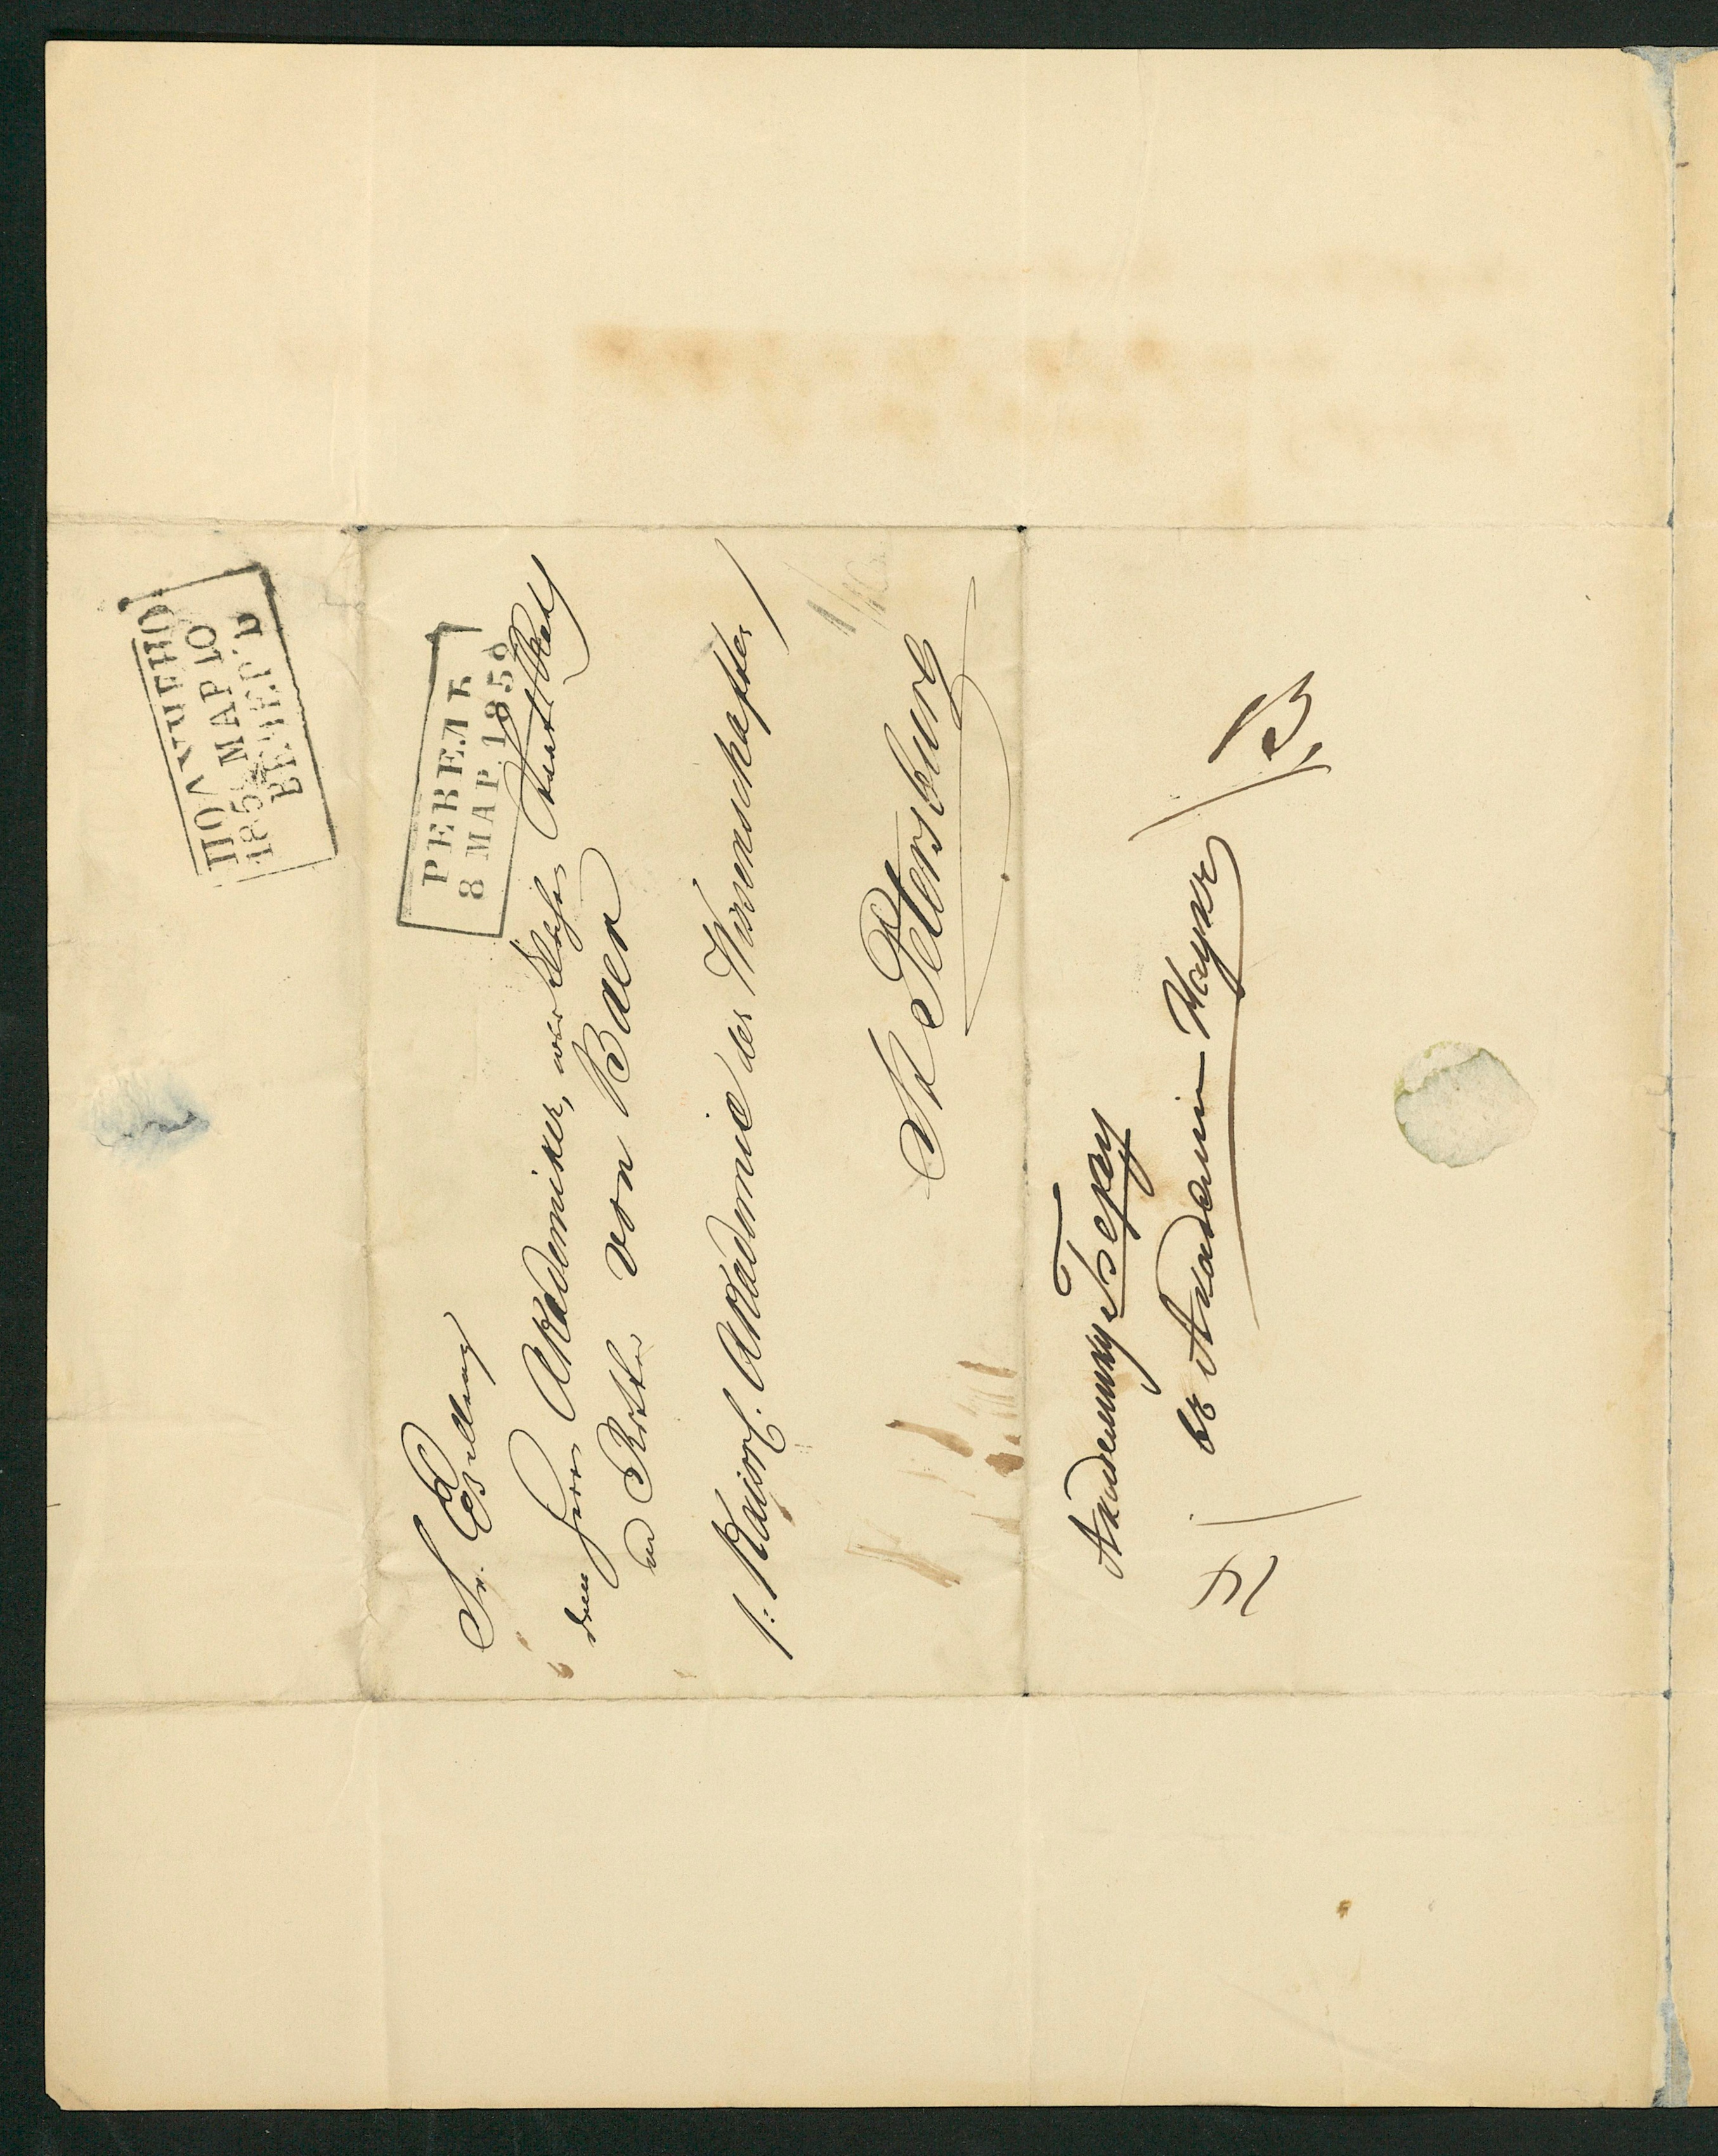 ПОЛУЧЕНО
185 МАР 10
ВЕЧЕРЪ
РЕВЕЛЬ
8 МАР. 1858
Sr. Excellenz
dem Herrn Akademiker, wirkl. Staatsrath
und Ritter von Baer
/: Kaiserl. Akademie der Wissenschaften /
St Petersburg
Академику Беру
въ Академіи Наукъ